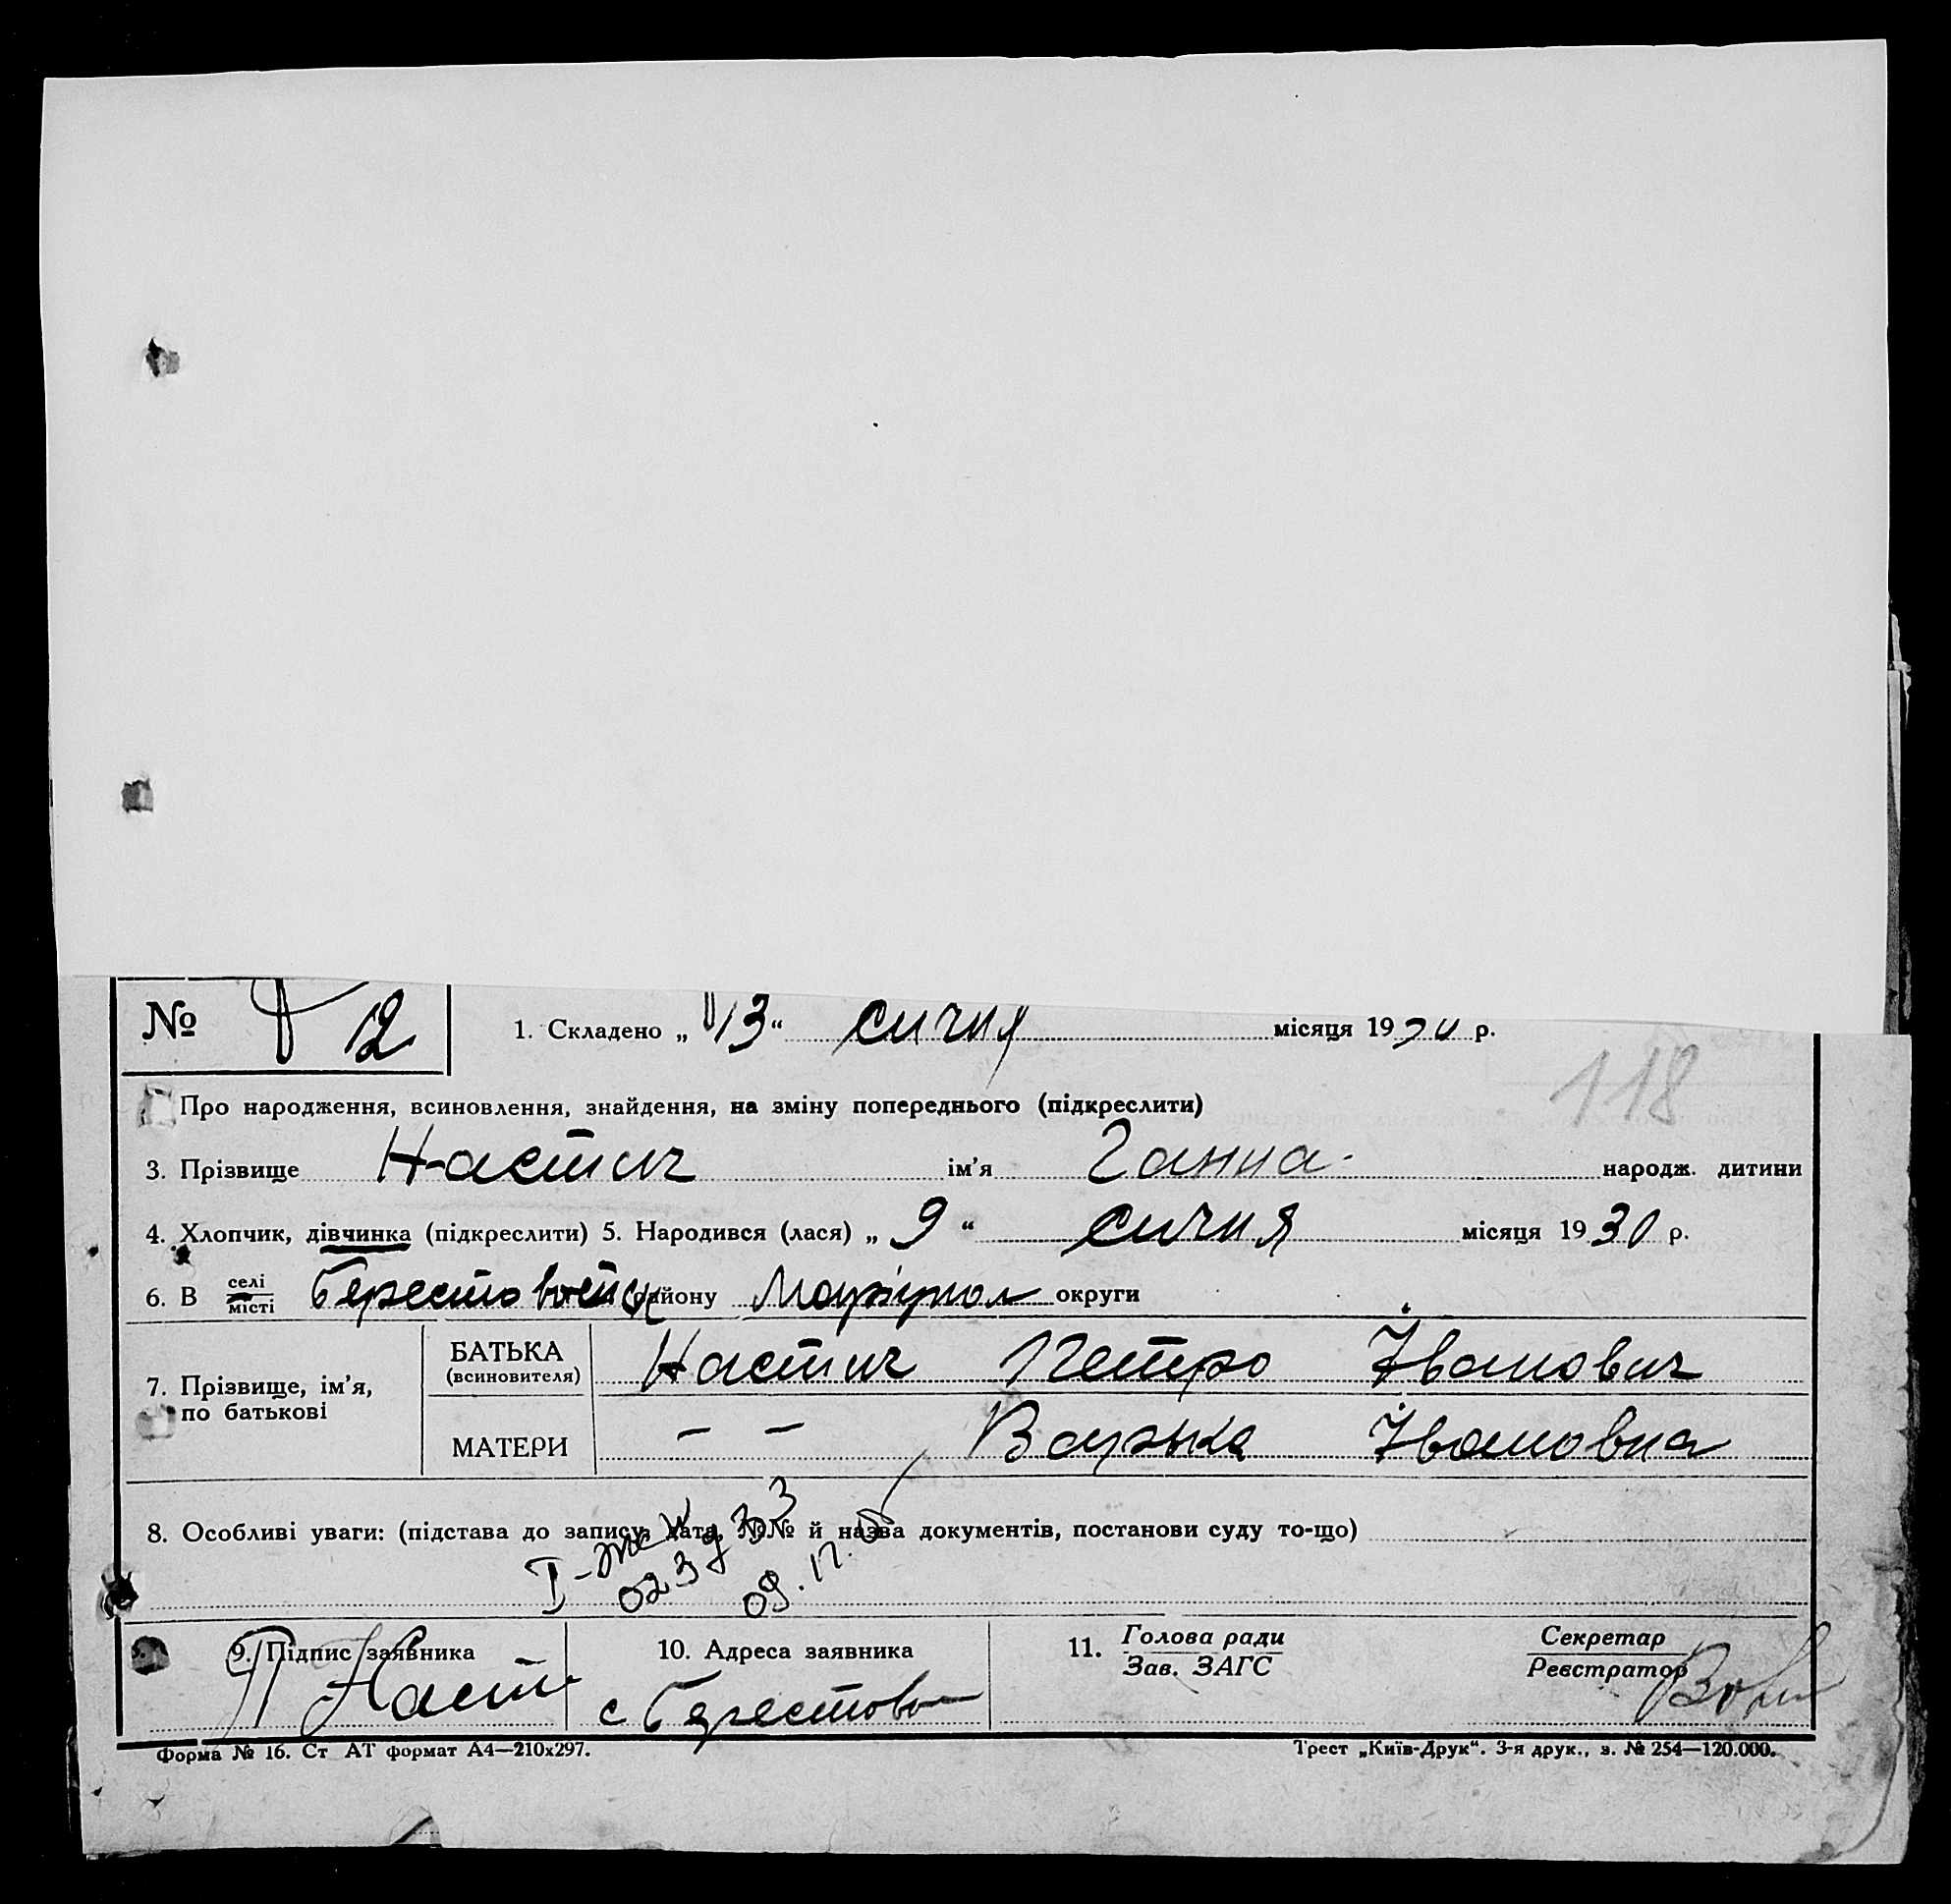 № 12 1. Складено „ 13 “ сичня місяця 1930 р.
118
Про народження, всиновлення, знайдення, на зміну попереднього (підкреслити)
3. Прізвище Настич ім’я Ганна народж. дитини
4. Хлопчик, дівчинка (підкреслити) 5. Народився (лася) „ 9 “ сичня місяця 1930 р.
6. В селі місті району Маріупол округи
7. Прізвище, ім’я, по батькові
БАТЬКА (всиновителя) Настич Петро Іванович
МАТЕРИ – – Варька Івановна
8. Особливі уваги: (підстава до запису, дата, №№ й назва документів, постанови суду то-що)
9. Підпис заявника 10. Адреса заявника 11. Голова ради Зав. ЗАГС Секретар Реєстратор
П Наст с Берестово
Форма № 16. Ст АТ формат А4—210х297. Трест „Київ-Друк“. 3-я друк., з. № 254—120.000.